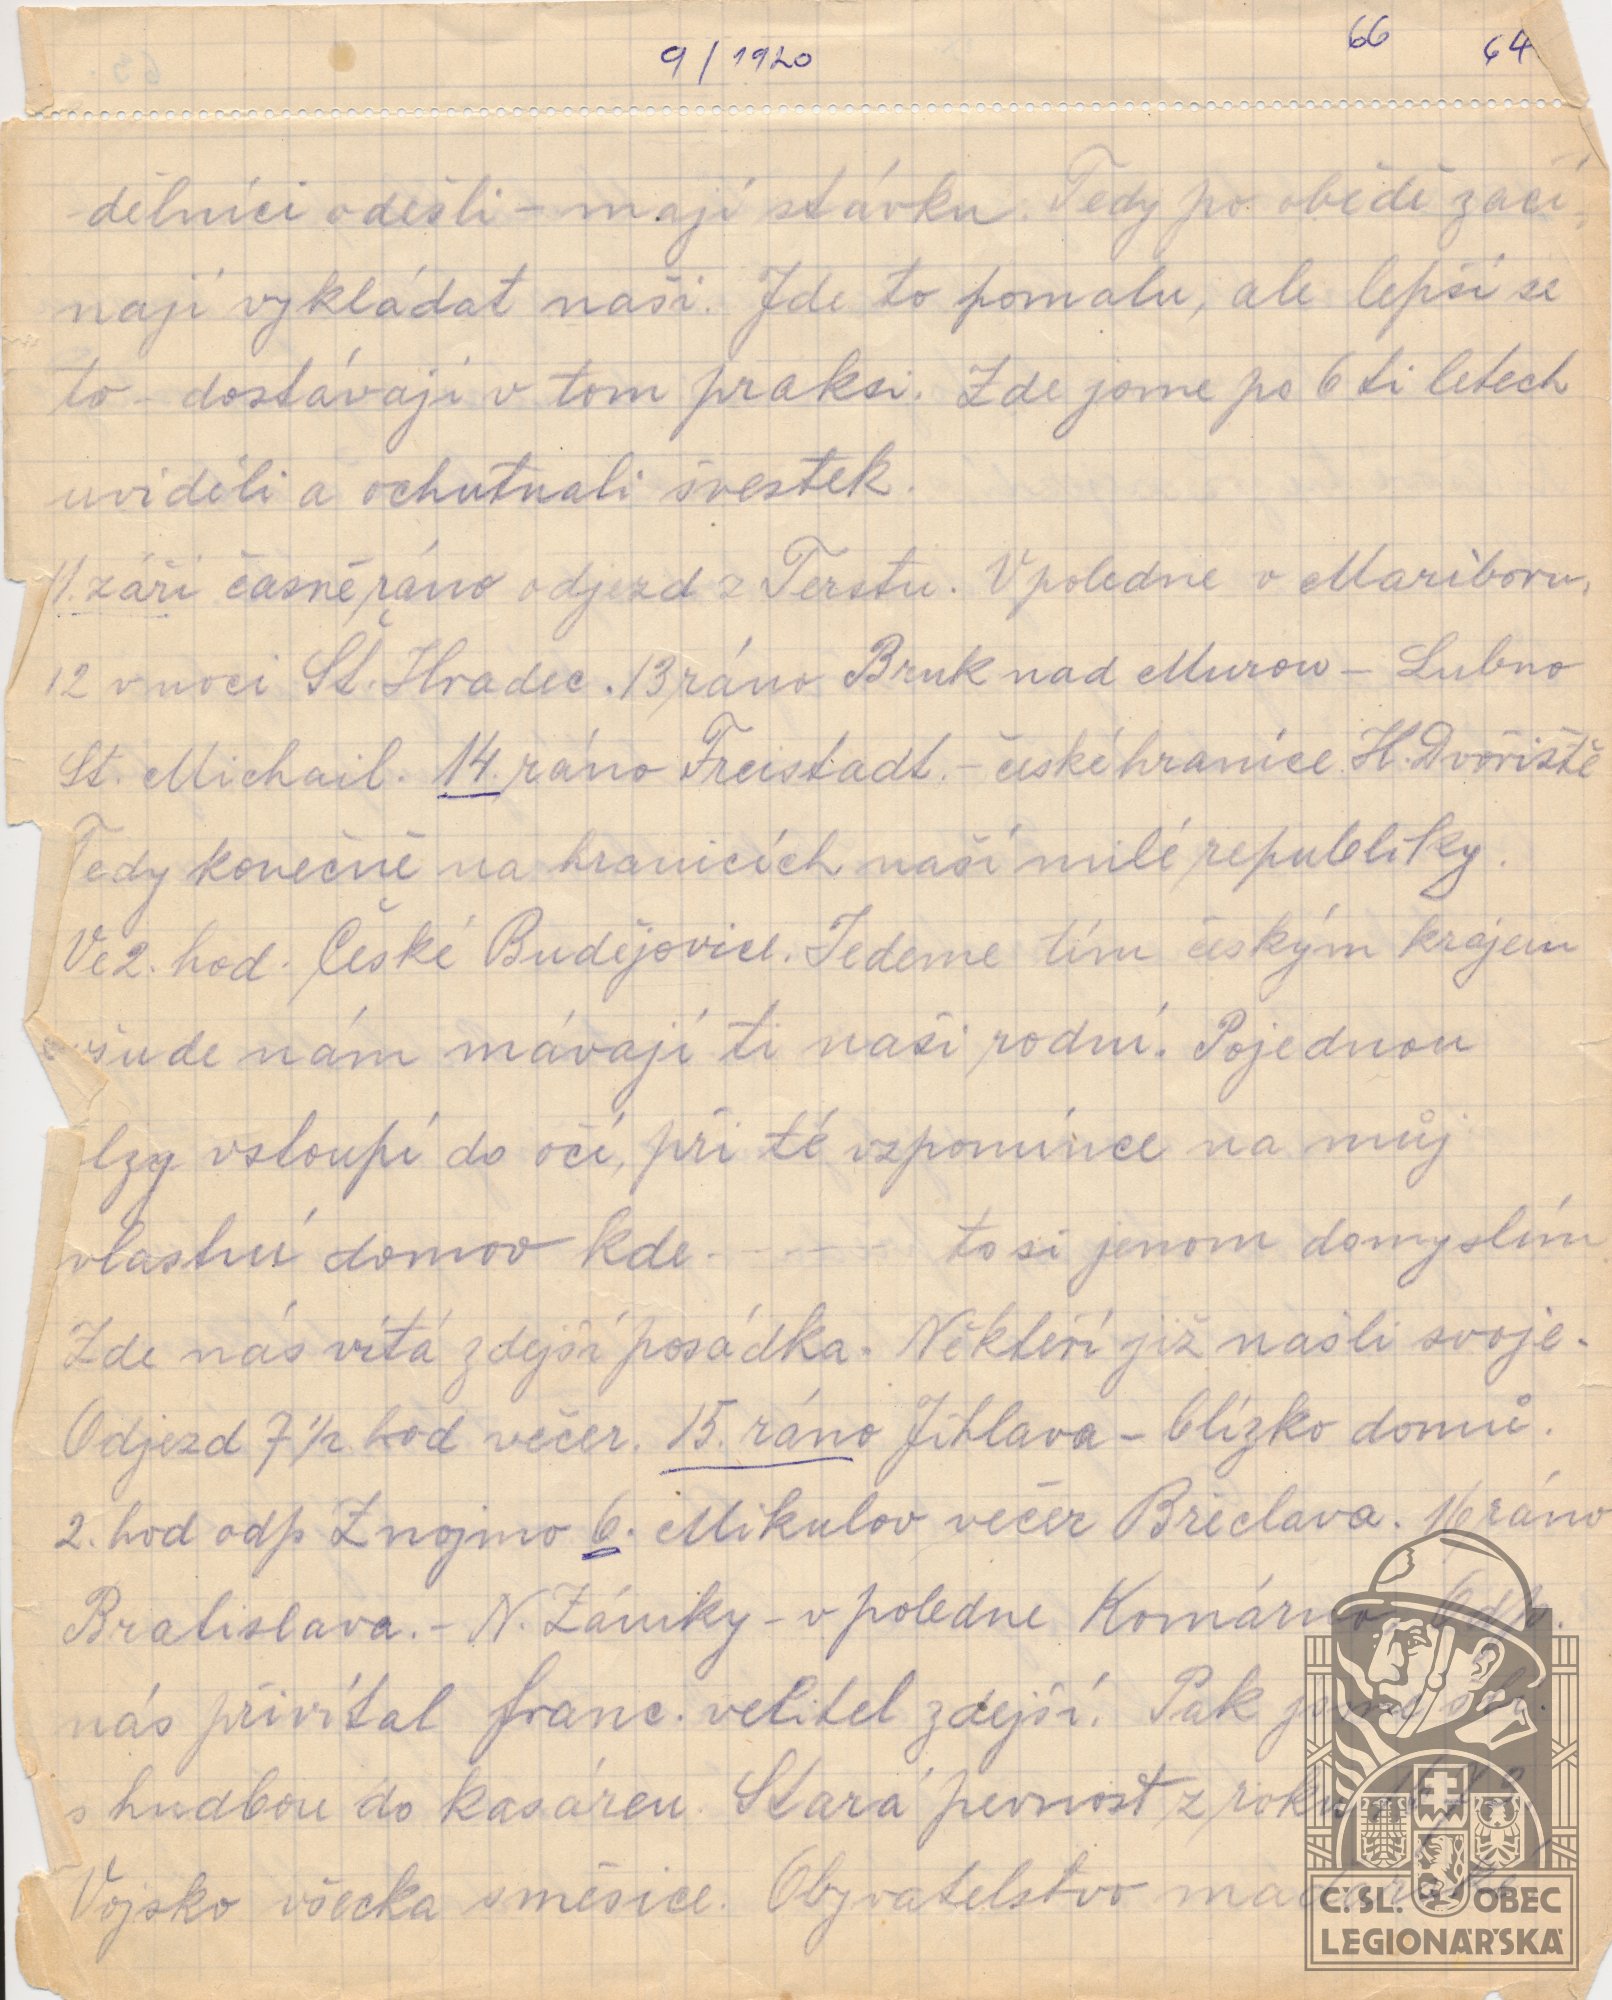 9/1920 66 64
dělníci odešli – mají stávku. Tedy po obědě začí-
nají vykládat naši. Jde to pomalu, ale lepší se
to – dostávají v tom praksi. Zde jsme po 6ti letech
uviděli a ochutnali švestek.
11. září časně ráno odjezd z Terstu. V poledne v Mariboru,
12 v noci Št. Hradec. 13 ráno Bruk nad Murou – Lubno
St. Michail. 14. ráno Freistadt. – české hranice H. Dvořiště
Tedy konečně na hranicích naší milé republiky.
Ve 2. hod. České Budějovice. Jedeme tím českým krajem
všude nám mávají ti naši rodní. Pojednou
slzy vstoupí do očí, při té vzpomínce na můj
vlastní domov kde - - - - - to si jenom domyslím
Zde nás vítá zdejší posádka. Někteří již našli svoje.
Odjezd 7 1/2 hod večer. 15. ráno Jihlava – blízko domů.
2. hod odp Znojmo 6. Mikulov večer Břeclava. 16 ráno
Bratislava. – N. Zámky – v poledne Komárno. Odp.
nás přivítal franc. velitel zdejší. Pak jsme
s hudbou do kasáren. Stará pevnost z roku
Vojsko všecka směsice. Obyvatelstvo
Č. SL. OBEC
LEGIONÁŘSKÁ